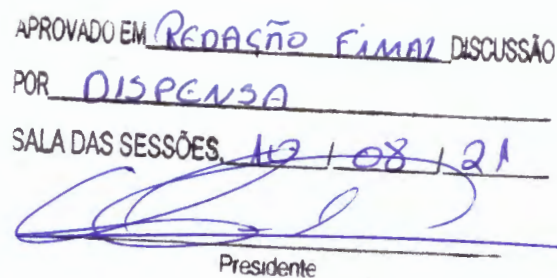 APROVADO EM REDAÇÃO FINAL DISCUSSÃO
POR DISPENSA
SALA DAS SESSÕES, 10 / 08 / 21
Presidente